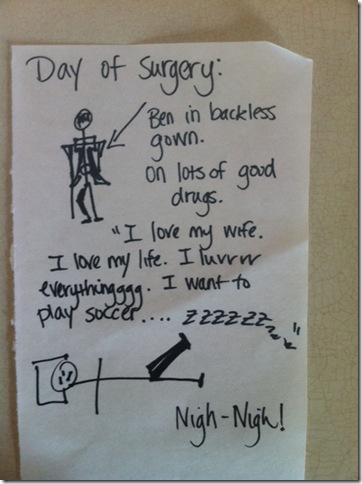 Day of Surgery:
Ben in backless
gown.
On lots of good
drugs.
"I love my wife.
I love my life. I luvrrr
everythingggg. I want to
play soccer.... zzzzzz
zzz"
Nigh-Nigh!